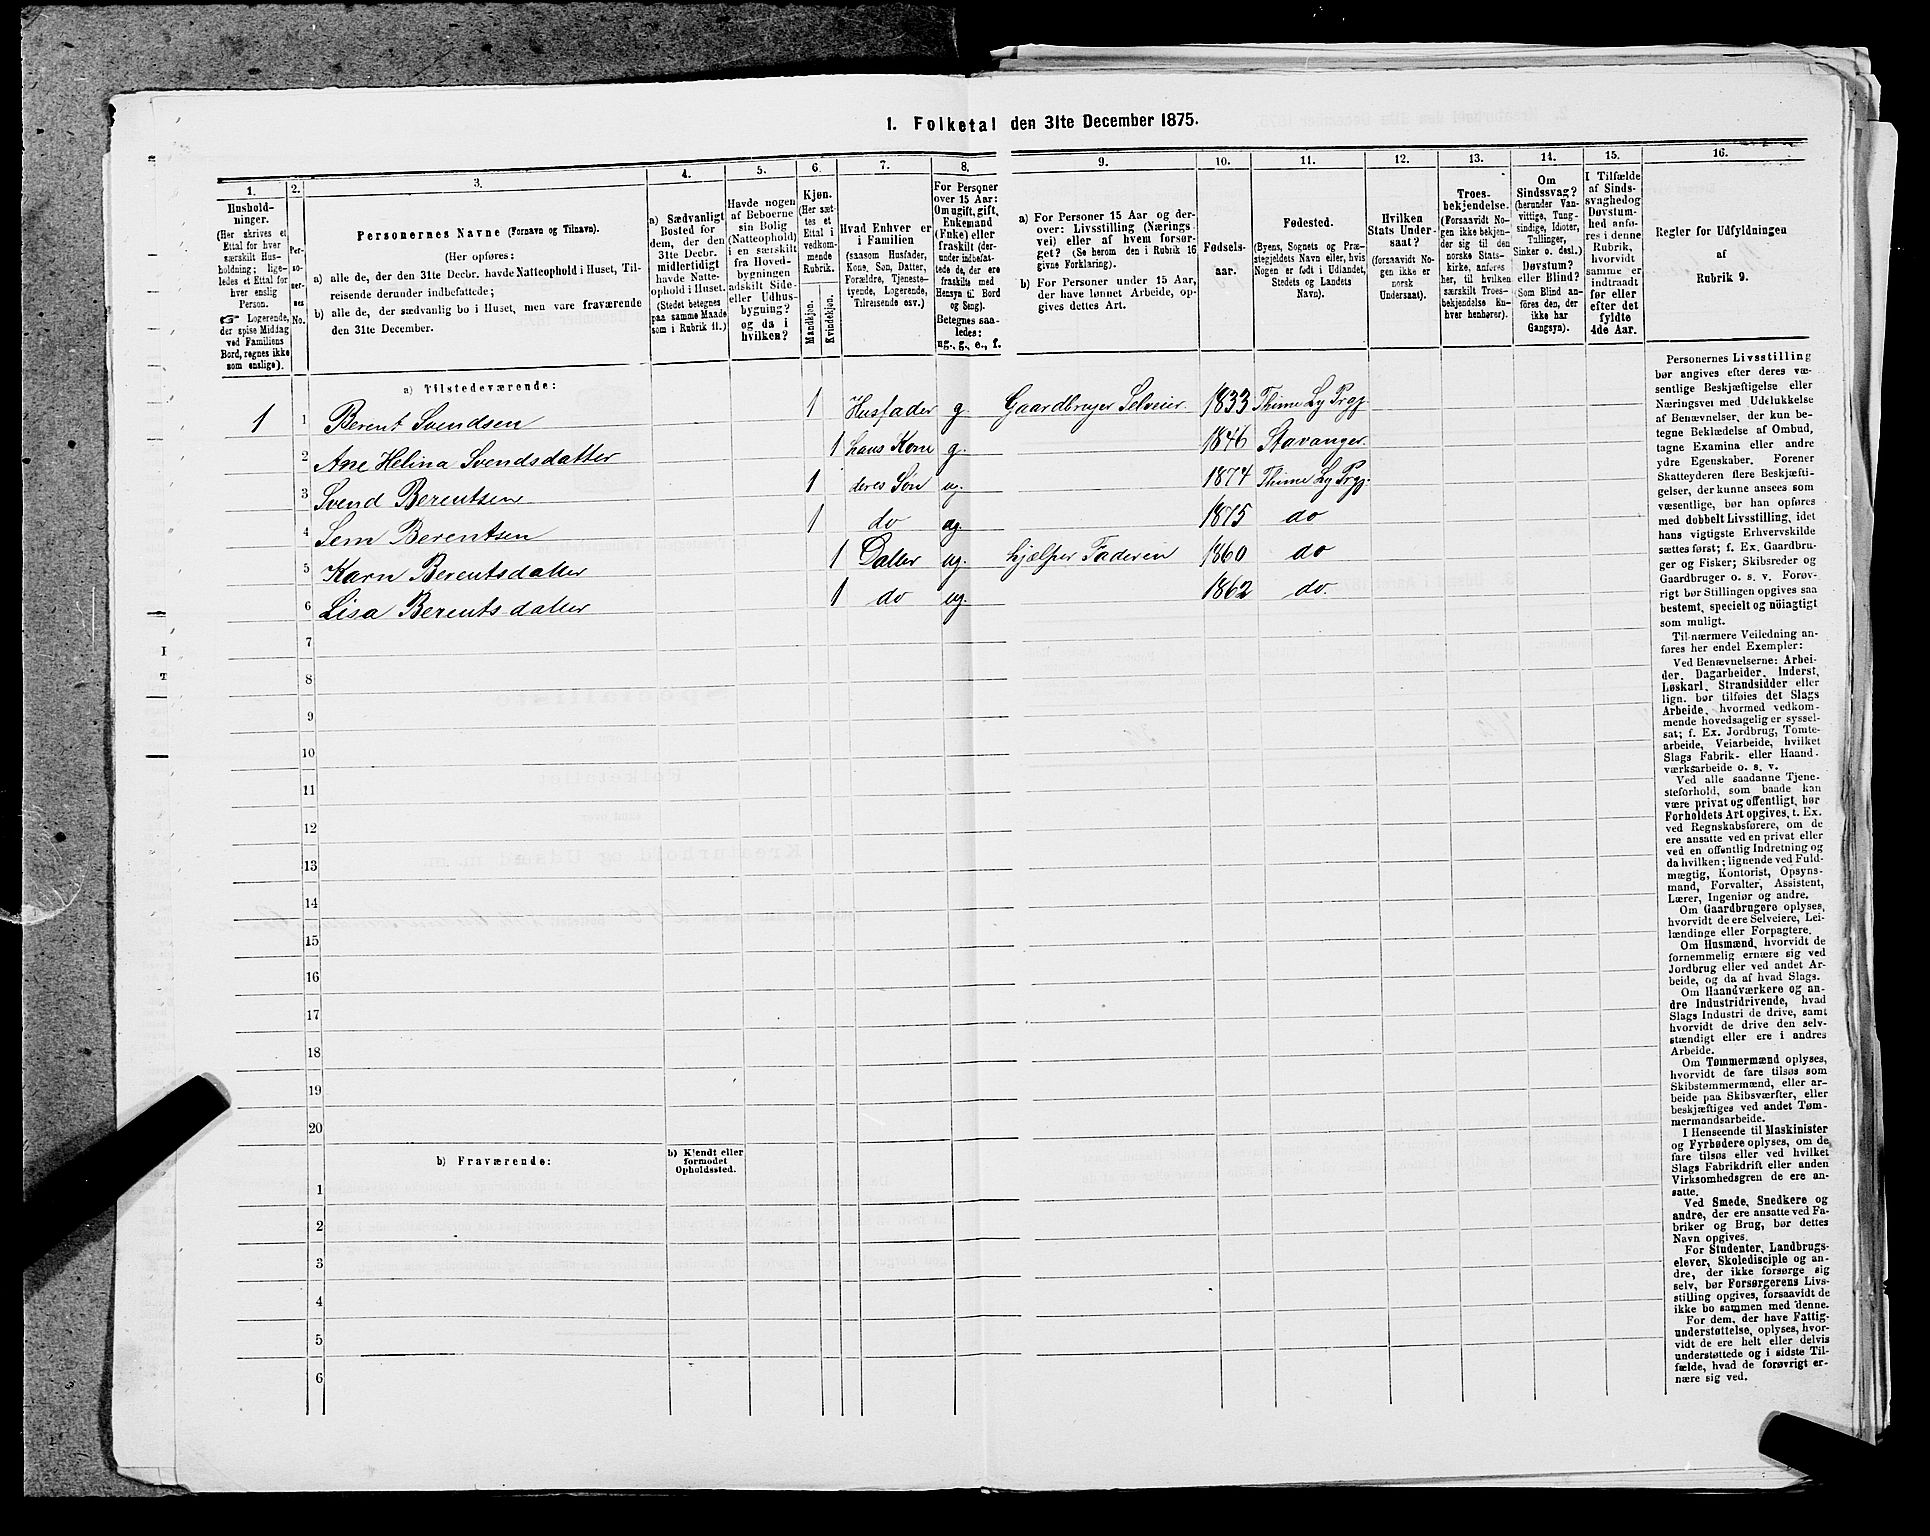 1. Folketal den 31te December 1875.
1. 2. 3. 4. 5. 6. 7. 8. 9. 10. 11. 12. 13. 14. 15. 16.
Hushold-
ninger.
(Her skrives et
Ettal for hver
særskilt Hus-
holdning; lige-
ledes et Ettal for
hver enslig
Person.
☞ Logerende,
der spise Middag
ved Familiens
Bord, regnes ikke
som enslige).
Per-
so-
ner-
nes
No.
Personernes Navne (Fornavn og Tilnavn).
(Her opføres:
a) alle de, der den 31te Decbr. havde Natteophold i Huset, Til-
reisende derunder indbefattede;
b) alle de, der sædvanlig bo i Huset, men vare fraværende
den 31te December.
a) Sædvanligt
Bosted for
dem, der den
31te Decbr.
midlertidigt
havde Natte-
ophold i Huset.
(Stedet betegnes
paa samme Maade
som i Rubrik 11.)
Havde nogen
af Beboerne
sin Bolig
(Natteophold)
i en særskilt
fra Hoved-
bygningen
adskilt Side-
eller Udhus-
bygning?
og da i
hvilken?
Kjøn.
(Her sæt-
tes et
Ettal i
vedkom-
mende
Rubrik.
Mandkjøn.
Kvindekjøn.
Hvad Enhver er
i Familien
(saasom Husfader,
Kone, Søn, Datter,
Forældre, Tjeneste-
tyende, Logerende,
Tilreisende osv.)
For Personer
over 15 Aar:
Om ugift, gift,
Enkemand
(Enke) eller
fraskilt (der-
under indbefat-
tede de, der ere
fraskilte med
Hensyn til Bord
og Seng).
Betegnes saa-
ledes:
ug., g., e., f.
a) For Personer 15 Aar og der-
over: Livsstilling (Nærings-
vei) eller af hvem forsør-
get? (Se herom den i Rubrik 16
givne Forklaring).
b) For Personer under 15 Aar,
der have lønnet Arbeide, op-
gives dettes Art.
Fødsels-
aar.
Fødested.
(Byens, Sognets og Præ-
stegjeldets Navn eller, hvis
Nogen er født i Udlandet,
Stedets og Landets
Navn).
Hvilken
Stats Under-
saat?
(forsaavidt No-
gen ikke er
norsk
Undersaat).
Troes-
bekjendelse.
(Forsaavidt No-
gen ikke bekjen-
der sig til den
norske Stats-
kirke, anføres
her, til hvilken
særskilt Troes-
bekjendelse En-
hver henhører).
Om
Sindssvag?
(herunder Van-
vittige, Tung-
sindige, Idioter,
Tullinger,
Sinker o. desl.)
Døvstum?
eller Blind?
(Som Blind an-
føres den, der
ikke har
Gangsyn).
I Tilfælde
af Sinds-
svaghed og
Døvstum-
hed anfø-
res i denne
Rubrik,
hvorvidt
samme er
indtraadt
før eller
efter det
fyldte
4de Aar.
Regler for Udfyldningen
af
Rubrik 9.
a) Tilstedeværende:
1 1 Berent Svendsen 1 Husfader g. Gaardbruger Selveier 1833 Thime Ly Prgj.
2 Ane Helina Svendsdatter 1 hans Kone g. 1846 Stavanger
3 Svend Berentsen 1 deres Søn ug. 1874 Thime Ly Prgj.
4 Sem Berentsen 1 do ug. 1875 do
5 Karn Berentsdatter 1 Datter ug. hjælper Faderen 1860 do
6 Lisa Berentsdatter 1 do ug. 1862 do.
7
8
9
10
11
12
13
14
15
16
17
18
19
20
b) Fraværende:
b) Kjendt eller
formodet
Opholdssted.
1
2
3
4
5
6
Personernes Livsstilling
bør angives efter deres væ-
sentlige Beskjæftigelse eller
Næringsvei med Udelukkelse
af Benævnelser, der kun be-
tegne Beklædelse af Ombud,
tagne Examina eller andre
ydre Egenskaber. Forener
Skatteyderen flere Beskjæfti-
gelser, der kunne ansees som
væsentlige, bør han opføres
med dobbelt Livsstilling, idet
hans vigtigste Erhvervskilde
sættes først; f. Ex. Gaardbru-
ger og Fisker; Skibsreder og
Gaardbruger o. s. v. Forøv-
rigt bør Stillingen opgives saa
bestemt, specielt og nöiagtigt
som muligt.
Til nærmere Veiledning an-
føres her endel Exempler:
Ved Benævnelserne: Arbei-
der, Dagarbeider, Inderst,
Løskarl, Strandsidder eller
lign. bør tilføies det Slags
Arbeide, hvormed vedkom-
mende hovedsagelig er syssel-
sat; f. Ex. Jordbrug, Tomte-
arbeide, Veiarbeide, hvilket
Slags Fabrik- eller Haand-
værksarbeide o. s. v.
Ved alle saadanne Tjene-
steforhold, som baade kan
være privat og offentligt, bør
Forholdets Art opgives, t. Ex.
ved Regnskabsførere, om de
ere ansatte ved en privat eller
ved en offentlig Indretning og
da hvilken; lignende ved Fuld-
mægtig, Kontorist, Opsyns-
mand, Forvalter, Assistent,
Lærer, Ingeniør og andre.
Om Gaardbrugere oplyses,
hvorvidt de ere Selveiere, Lei-
lændinge eller Forpagtere.
Om Husmænd, hvorvidt de
fornemmelig ernære sig ved
Jordbrug eller ved andet Ar-
beide, og da af hvad Slags.
Om Haandværkere og an-
dre Industridrivende, hvad
Slags Industri de drive, samt
hvorvidt de drive den selv-
stændigt eller ere i andres
Arbeide.
Om Tømmermænd oplyses,
hvorvidt de fare tilsøs som
Skibstømmermænd, eller ar-
beide paa Skibsværfter, eller
beskjæftiges ved andet Tøm-
mermandsarbeide.
I Henseende til Maskinister
og Fyrbødere oplyses, om de
fare tilsøs eller ved hvilket
Slags Fabrikdrift eller anden
Virksomhedsgren de ere an-
satte.
Ved Smede, Snedkere og
andre, der ere ansatte ved Fa-
briker og Brug, bør dettes
Navn opgives.
For Studenter, Landbrugs-
elever, Skoledisciple og an-
dre, der ikke forsørge sig
selv, bør Forsørgerens Livs-
stilling opgives, forsaavidt de
ikke bo sammen med denne.
For dem, der have Fattig-
understøttelse, oplyses, hvor-
vidt de ere helt eller delvis
understøttede og i sidste Til-
fælde, hvad de forøvrigt er-
nære sig ved.